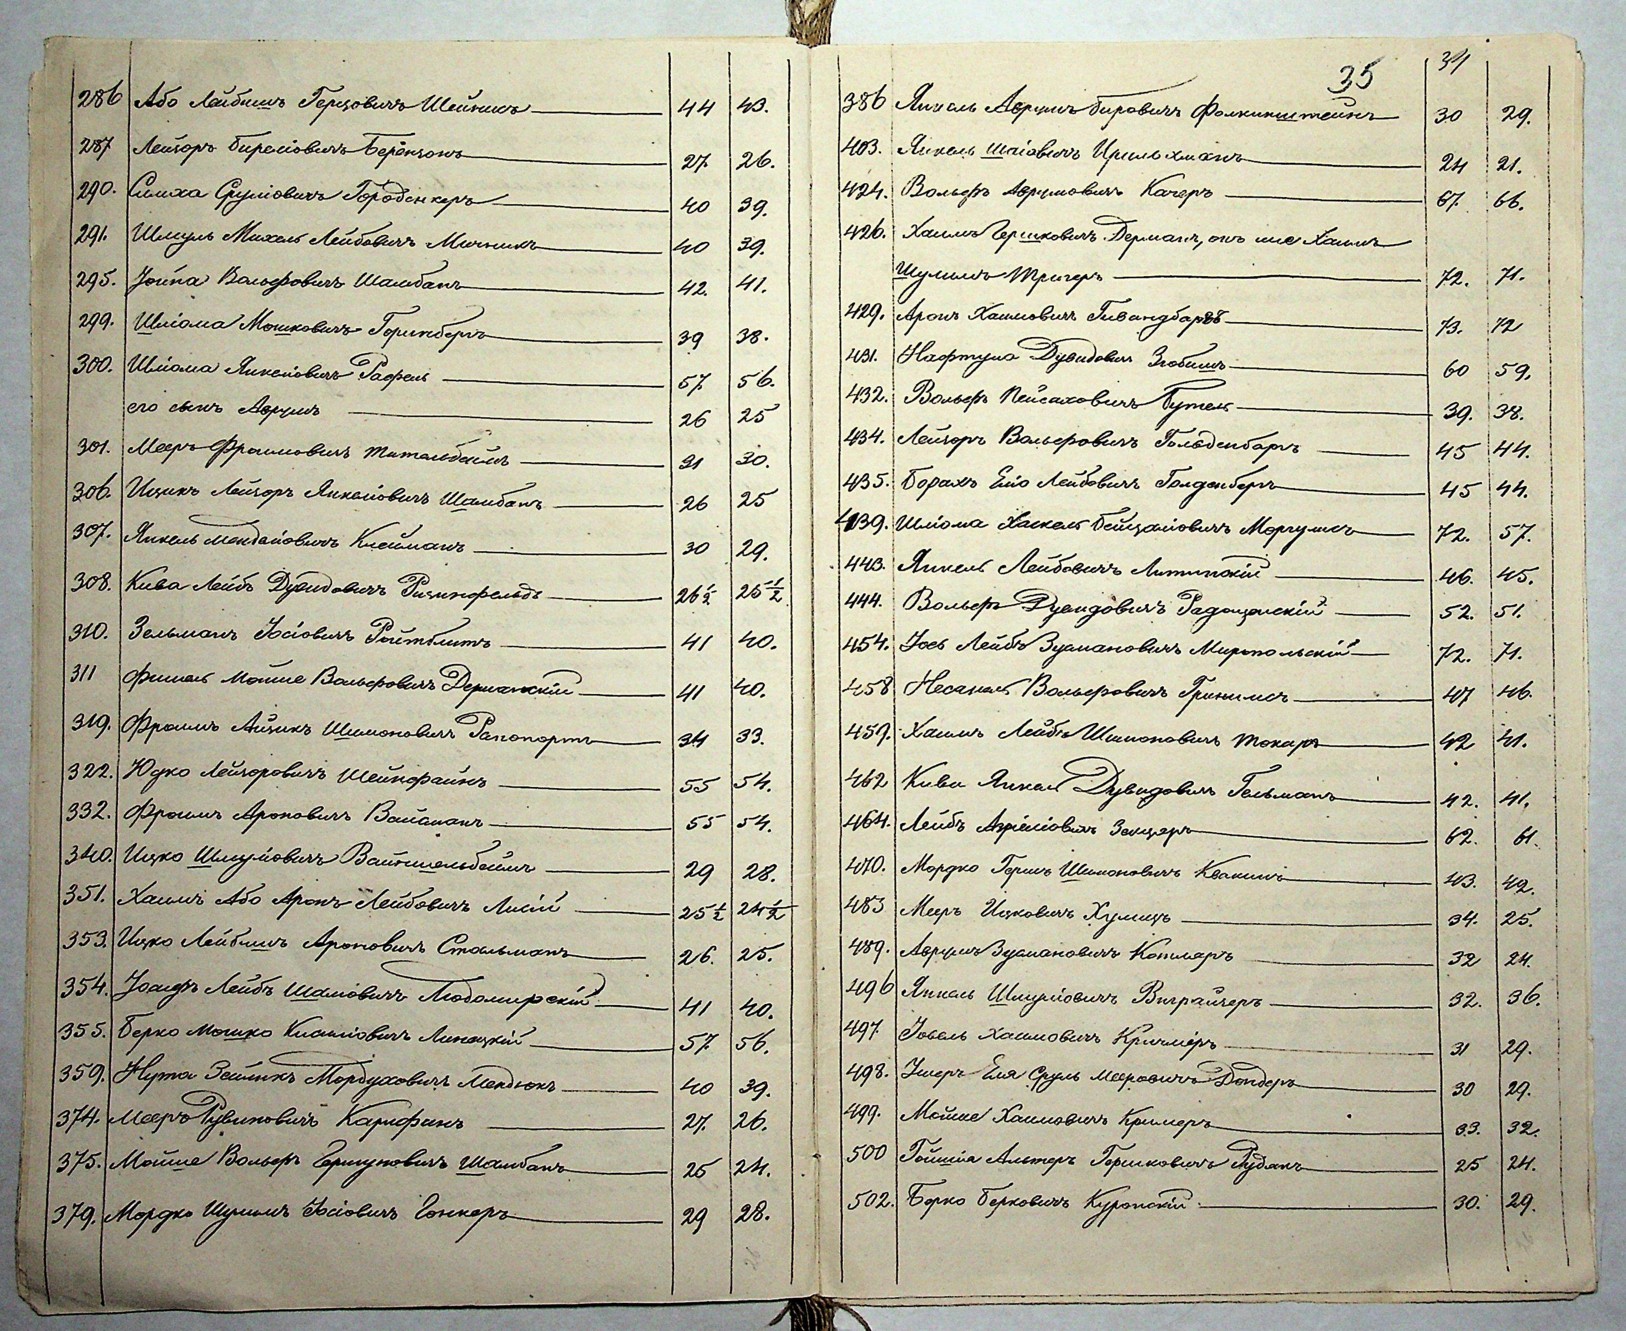 286 Або Лейбишъ Герцовичъ Шейникъ 44 43.
287 Лейзоръ Биресіовичъ Берензонъ 27. 26.
290. Симха Сруліовичъ Городенкеръ 40 39.
291. Шмуль Михель Лейбовичъ Мичникъ 40 39.
295. Іойна Вольфовичъ Шамбанъ 42. 41.
299. Шліома Мошковичъ Горинбергъ 39 38.
300. Шліома Янкеліовичъ Рафель 57. 56.
его сынъ Аврумъ 26 25
301. Мееръ Фроимовичъ Тительбеимъ 31 30.
306. Ицикъ Лейзоръ Янкеліовичъ Шамбанъ 26 25
307. Янкель Менделіовичъ Клейманъ 30 29.
308. Кива Лейбъ Дувидовичъ 26 1/2 25 1/2
310. Зельманъ Іосіовичъ Ройтблитъ 41 40.
311 Фишель Мойше Вольфовичъ Дерманскій 41 40.
319. Фроимъ Айзикъ Шимоновичъ Рапопортъ 34 33.
322. Юдко Лейзоровичъ Шейнфаинъ 55 54.
332. Фроимъ Ароновичъ Вайсманъ 55 54.
340. Ицко Шмуліовичъ Вайншельбеимъ 29 28.
351. Хаимъ Або Аронъ Лейбовичъ Лисій 25 1/2 24 1/2
353. Ицко Лейбишъ Ароновичъ Стольманъ 26. 25.
354. Іосифъ Лейбъ Шаліовичъ Любомирскій 41 40.
355. Берко Мошко Кисиліовичъ Липецкій 57. 56.
359. Нута Зейликъ Мордуховичъ Мендюкъ 40 39.
374. Мееръ Рувиновичъ Карнфанъ 27. 26.
375. Мойше Вольфъ Гершуновичъ Шамбанъ 25 24.
379. Мордко Шулимъ Іосіовичъ Гонкеръ 29 28.
35
34
386 Янкель Аврумъ Бировичъ Фалкинштейнъ 30 29.
403. Янкель Шаіовичъ 24 21.
424. Вольфъ Аврумовичъ Качеръ 67. 66.
426. Хаимъ Гершковичъ Дерманъ, онъ же Хаимъ
Шулимъ Тригеръ 72. 71.
429. Аронъ Хаимовичъ 73. 72
431. Нафтула Дувидовичъ Зюбишъ 60 59.
432. Вольфъ Пейсаховичъ Бутель 39. 38.
434. Лейзоръ Вольфовичъ Гольденбергъ 45 44.
435. Борахъ Еліо Лейбовичъ Голденбергъ 45 44.
439. Шліома Хаскель Бенцаліовичъ Моргулисъ 72. 57.
443. Янкель Лейбовичъ Литинскій 46. 45.
444. Вольфъ Дувидовичъ Радощанскій 52. 51.
454. Іось Лейбъ Зусмановичъ Миропольскій 72. 71.
458 Несанель Вольфовичъ Гринимсъ 47 46.
459. Хаимъ Лейбъ Шимоновичъ Токаръ 42 41.
462 Кива Янкель Дувидовичъ Гельманъ 42. 41.
464. Лейбъ Азріеліовичъ Зельцеръ 62. 61.
470. Мордко Гершъ Шимоновичъ Квакишъ 43. 42.
483 Мееръ Ицковичъ Хулицъ 34. 25.
489. Аврумъ Зусмановичъ Котляръ 32 24.
496 Янкель Шмуліовичъ Виграйзеръ 32. 36.
497. Іовель Хаимовичъ Кричмеръ 31 29.
498. Ушеръ Еля Сруль Мееровичъ Бондеръ 30 29.
499. Мойше Хаимовичъ Кримеръ 33. 32.
500 Гойшіа Альтеръ Гершковичъ Рубанъ 25 24.
502. Берко Берковичъ Куропскій 30. 29.